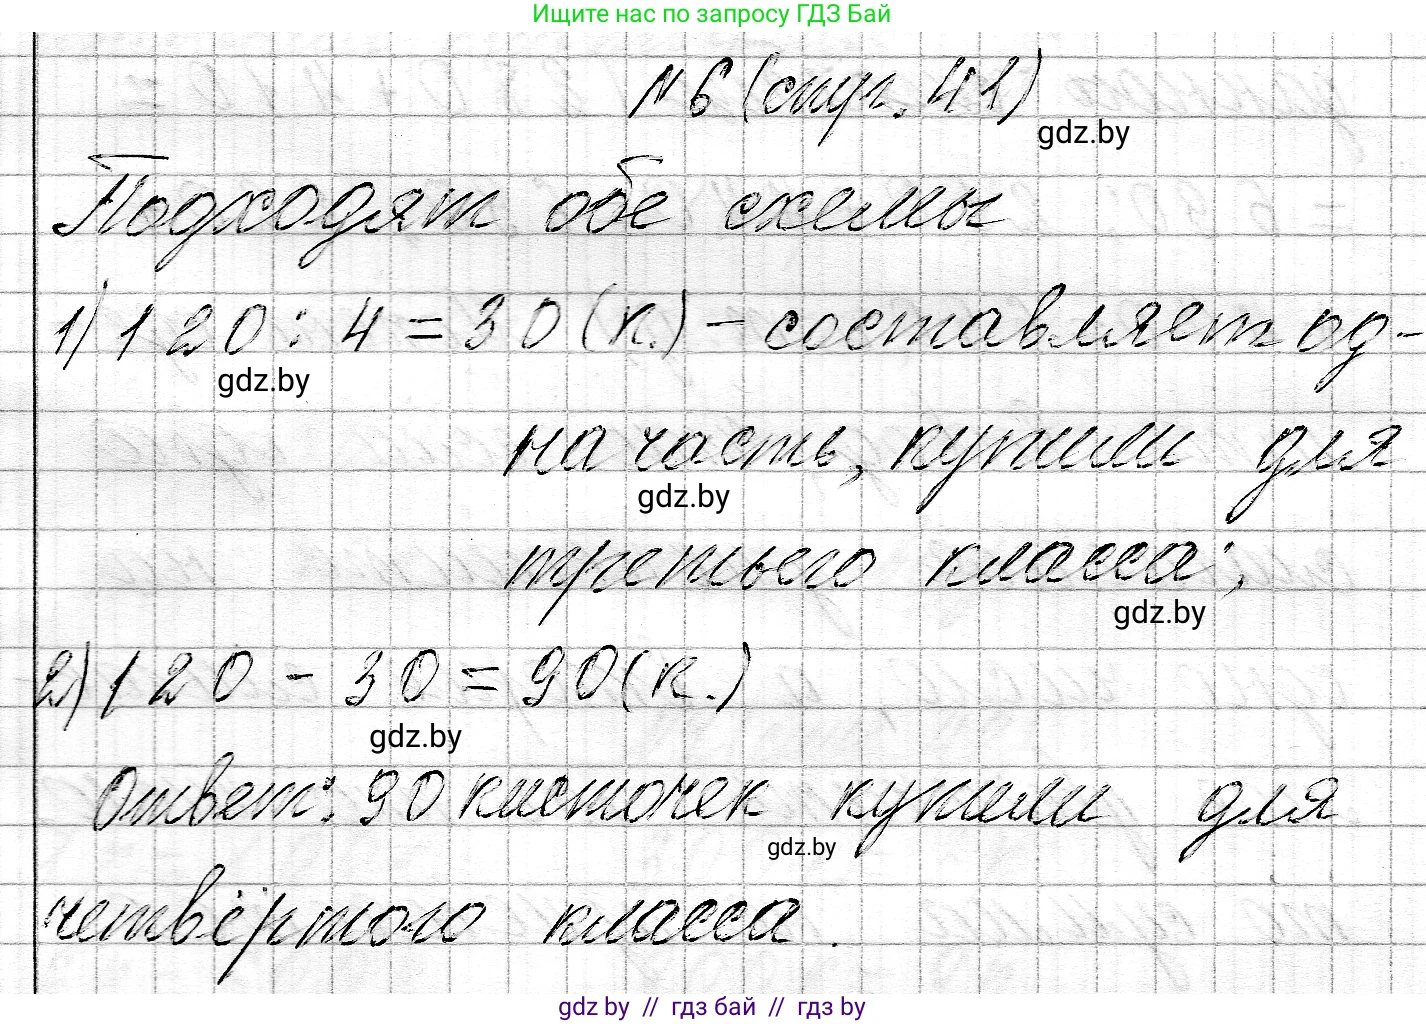 Ищите нас по запросу ГДЗ Бай
№6 (стр. 41)
gdz.by
Подходят обе схемы
1) 120 : 4 = 30 (к.) – составляет од-
gdz.by
на часть, купили для
gdz.by
третьего класса;
gdz.by
2) 120 - 30 = 90 (к.)
gdz.by
Ответ: 90 кисточек купили для
gdz.by
четвёртого класса.
gdz.by // гдз бай // гдз by